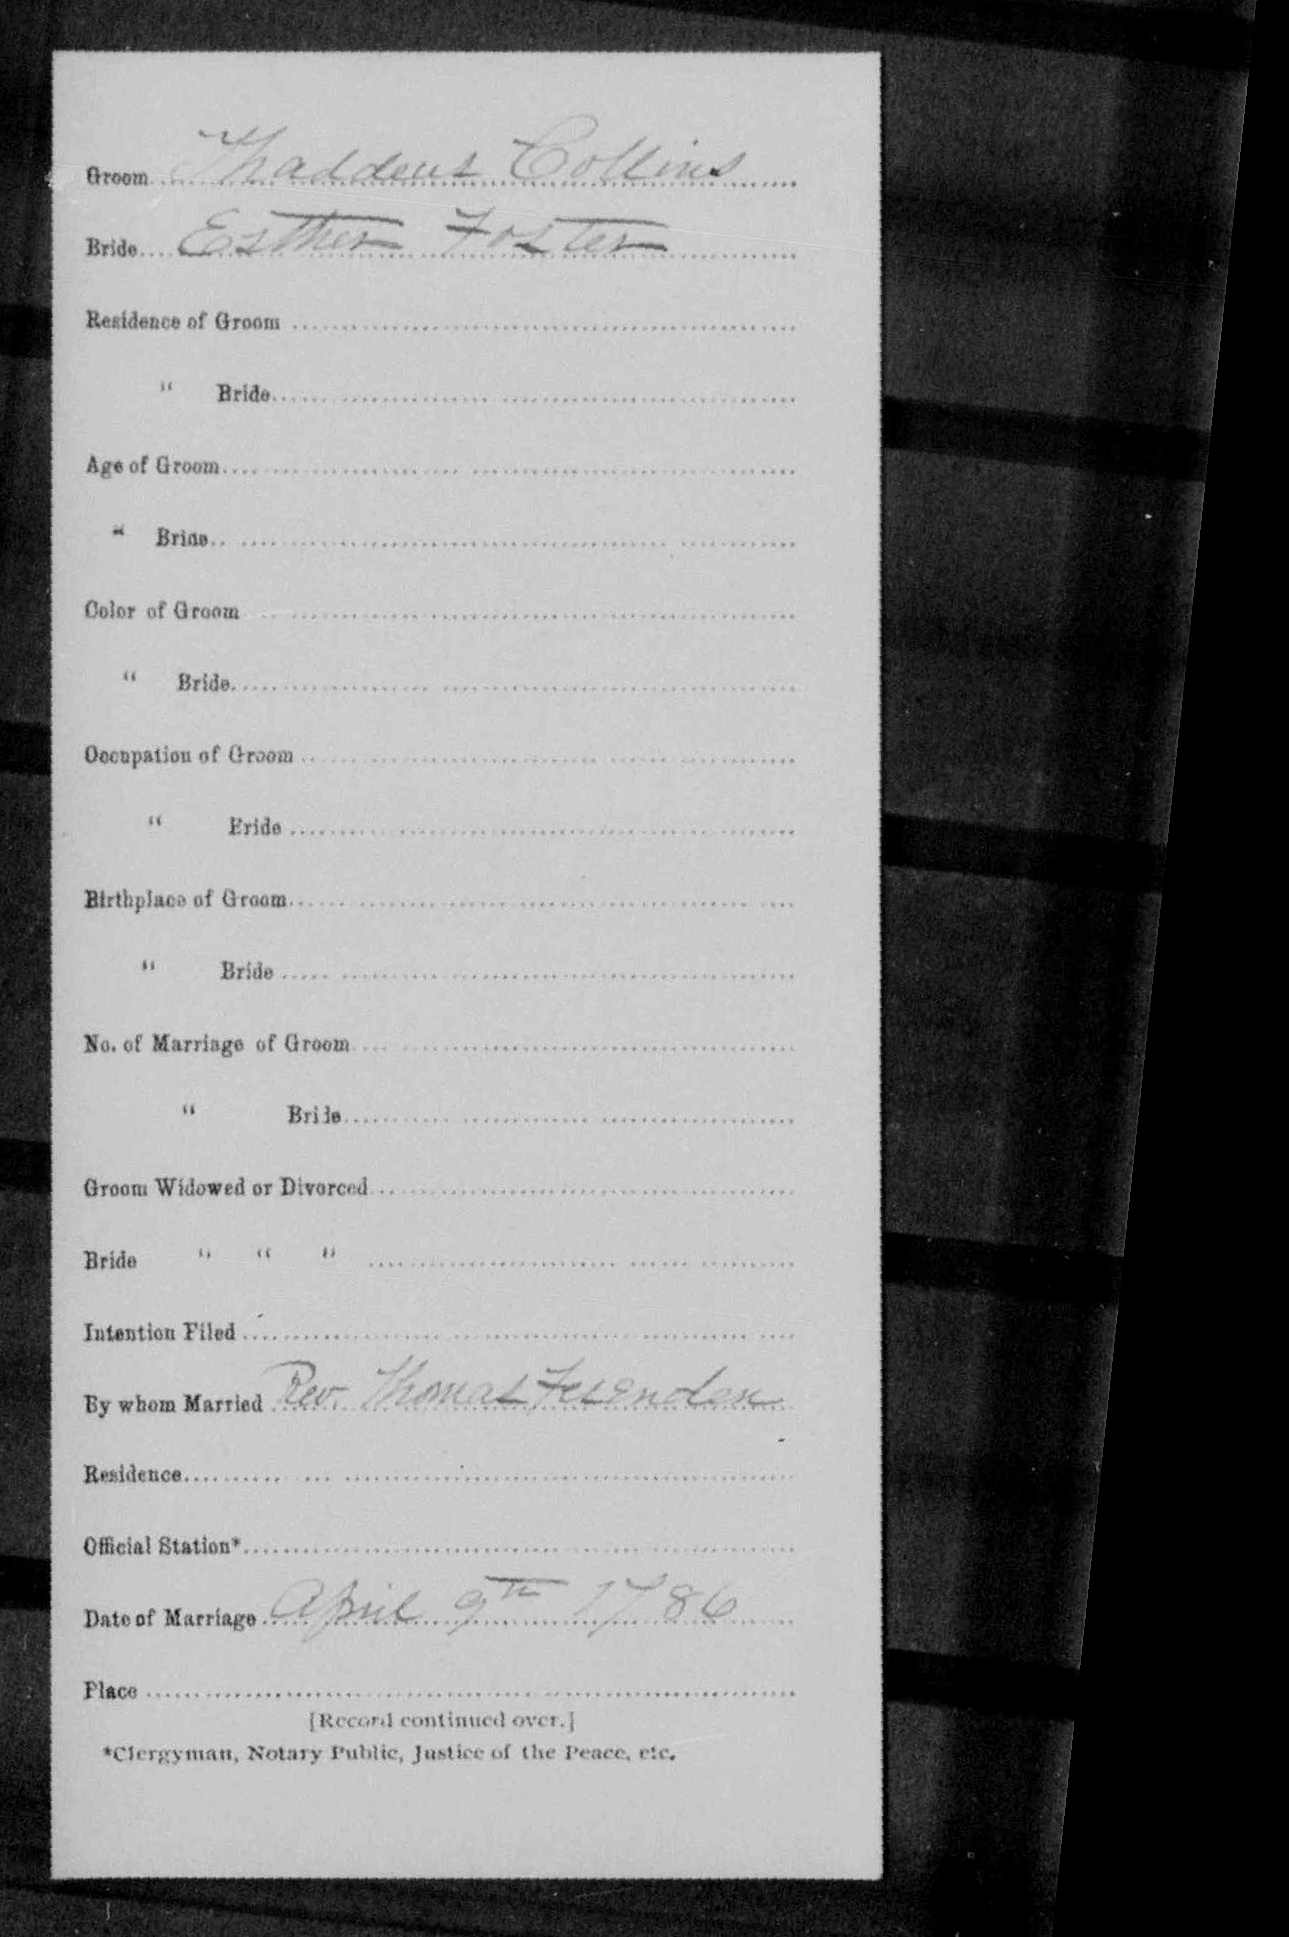 Groom Thaddeus Collins
Bride Esther Foster
Residence of Groom
" Bride
Age of Groom
" Bride
Color of Groom
" Bride
Occupation of Groom
" Bride
Birthplace of Groom
" Bride
No. of Marriage of Groom
" Bride
Groom Widowed or Divorced
Bride " " "
Intention Filed
By whom Married Rev. Thomas Fesenden
Residence
Official Station*
Date of Marriage April 9th 1786
Place
[Record continued over.]
*Clergyman, Notary Public, Justice of the Peace, etc.